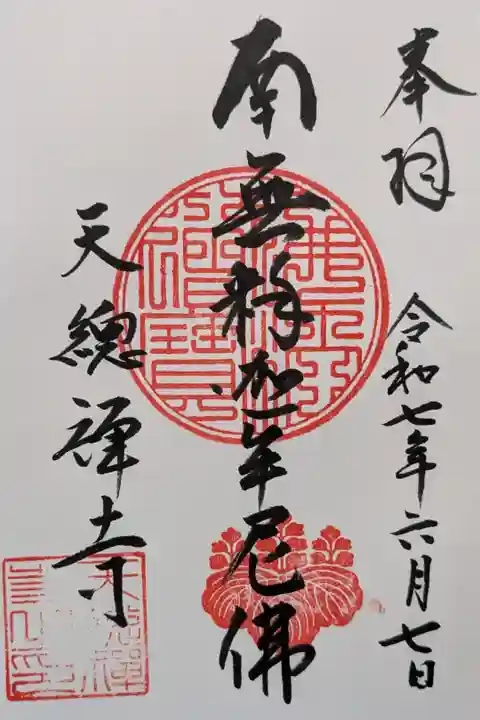 奉拝
令和七年六月七日
南無釈迦牟尼佛
天總禅寺
佛法僧寶